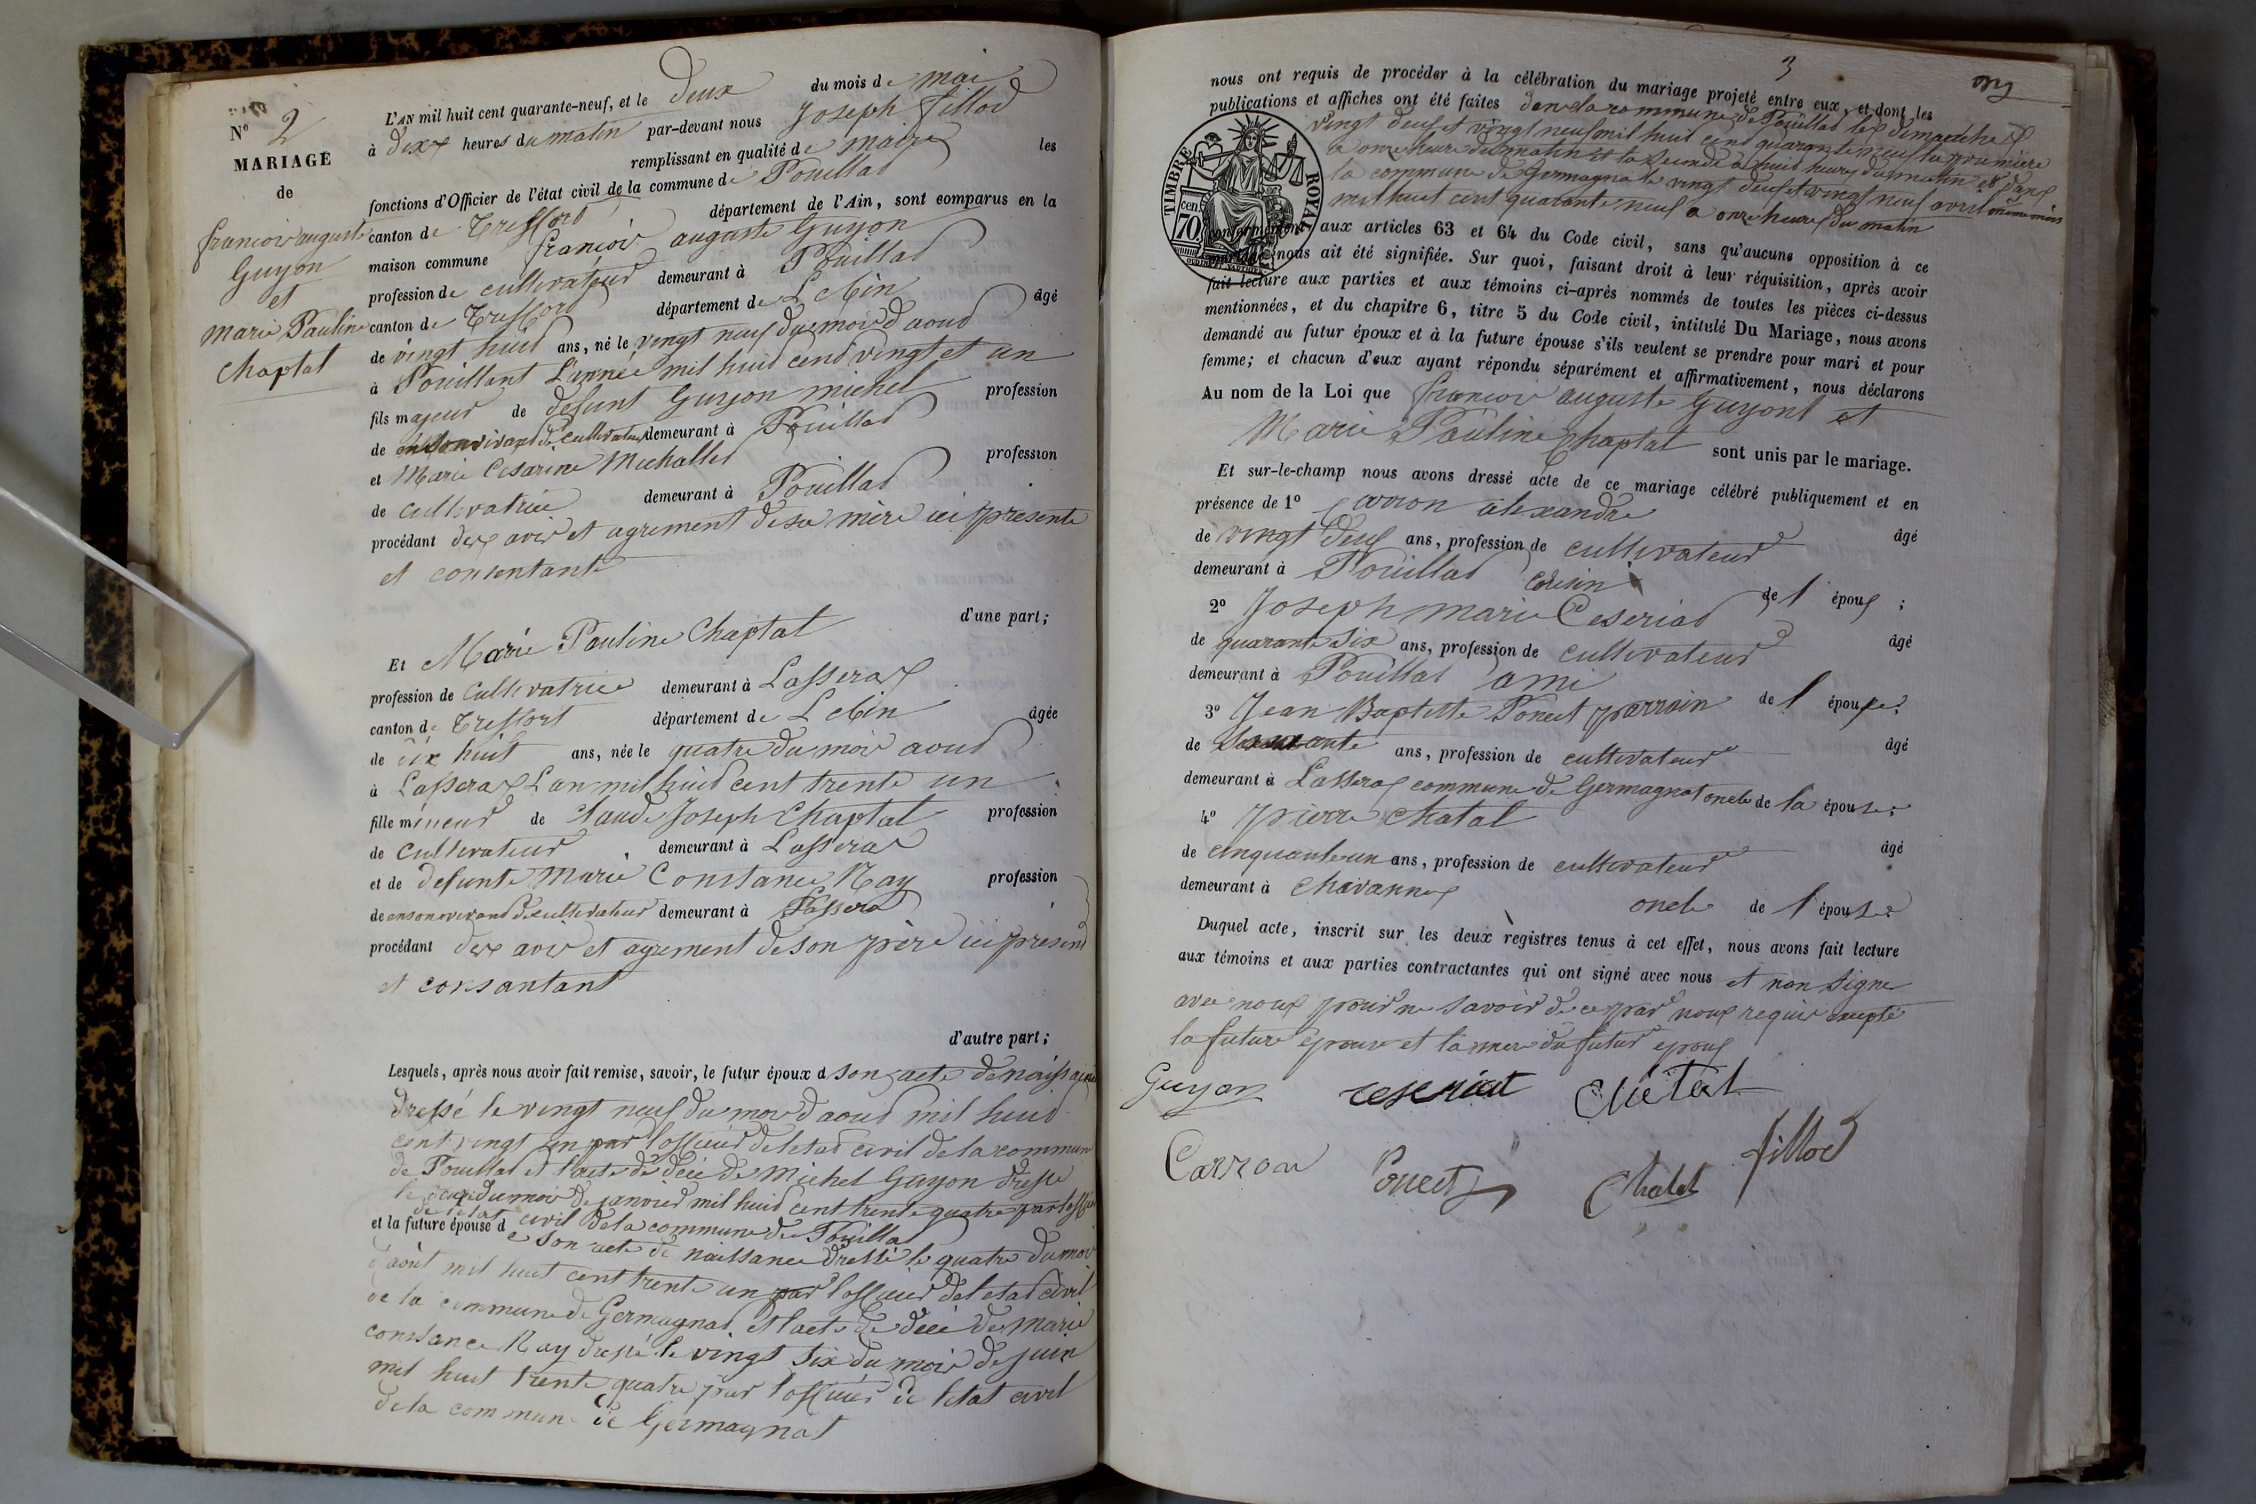 N° 2
MARIAGE
de
francois auguste
Guyon
et
Marie Pauline
Chaptal
L'AN mil huit cent quarante-neuf, et le deux du mois de mai
à dix heures du matin par-devant nous Joseph fillod
remplissant en qualité de maire les
fonctions d'Officier de l'état civil de la commune de Pouillat
canton de Treffort département de l'Ain, sont comparus en la
maison commune francois auguste Guyon
profession de cultivateur demeurant à Pouillat
canton de Treffort département de L'Ain âgé
de vingt huit ans, né le vingt neuf du mois d aout
à Pouillant L'année mil huit cent vingt et un
fils majeur de defunt Guyon michel profession
de en son vivant de cultivateur demeurant à Pouillat
et Marie Cesarine Michallet profession
de cultivatrice demeurant à Pouillat
procédant des avis et agrement de sa mère ici presente
et consentante
d'une part;
Et Marie Pauline Chaptal
profession de cultivatrice demeurant à Lasseras
canton de Treffort département de L'Ain âgée
de dix huit ans, née le quatre du mois aout
à Lasseras L an mil huit cent trente un
fille mineur de Claude Joseph Chaptal profession
de cultivateur demeurant à Lassera
et de defunte Marie Constance Ray profession
de en son vivant de cultivateur demeurant à Lassera
procédant des avis et agrement de son père ici présent
et consantant
d'autre part;
Lesquels, après nous avoir fait remise, savoir, le futur époux d son acte de naissance
dressé le vingt neuf du mois d aout mil huit
cent vingt un par l'officier de letat civil de la commune
de Pouillat et l'acte de décé de Michel Guyon dressé
le du mois de janvier mil huit cent trente quatre par loffi
de letat civil de la commune de Pouillat
et la future épouse d e son acte de naissance dressé le quatre du mois
d'août mil huit cent trente un par l'officier de letat civil
de la commune de Germagnat et l'acte de décé de Marie
constance Ray dressé le vingt six du mois de juin
mil huit trente quatre par l'officier de letat civil
de la commune de Germagnat
3
nous ont requis de procéder à la célébration du mariage projeté entre eux, et dont les
publications et affiches ont été faites dans la commune de Pouillat les dimanche
vingt deux et vingt neuf mil huit cent quarante neuf la première
a onze heure du matin et la seconde a huit heures du matin et dans
la commune de Germagnat le vingt deux et vingt neuf avril même mois
mil huit cent quarante neuf a onze heures du matin
TIMBRE ROYAL
70 cen.
conformément aux articles 63 et 64 du Code civil, sans qu'aucune opposition à ce
mariage nous ait été signifiée. Sur quoi, faisant droit à leur réquisition, après avoir
fait lecture aux parties et aux témoins ci-après nommés de toutes les pièces ci-dessus
mentionnées, et du chapitre 6, titre 5 du Code civil, intitulé Du Mariage, nous avons
demandé au futur époux et à la future épouse s'ils veulent se prendre pour mari et pour
femme; et chacun d'eux ayant répondu séparément et affirmativement, nous déclarons
Au nom de la Loi que francois auguste Guyont et
Marie Pauline Chaptal sont unis par le mariage.
Et sur-le-champ nous avons dressé acte de ce mariage célébré publiquement et en
présence de 1° Carron alexandre âgé
de vingt deux ans, profession de cultivateur
demeurant à Pouillat cousin de l époux ;
2° Joseph marie Ceseriat âgé
de quarante six ans, profession de cultivateur
demeurant à Pouillat ami de l épouse;
3° Jean Baptiste Poncet parrain âgé
de soixante ans, profession de cultivateur
demeurant à Lasseras commune de Germagnat oncle de la épouse;
4° pierre chatal âgé
de cinquante un ans, profession de cultivateur
demeurant à Chavannes oncle de l épouse;
Duquel acte, inscrit sur les deux registres tenus à cet effet, nous avons fait lecture
aux témoins et aux parties contractantes qui ont signé avec nous et non signe
avec nous pour ne savoir de ce par nous requis excepté
la future épouse et la mere du futur epoux
Guyon ceseriat
Carron Poncet Chatal fillod